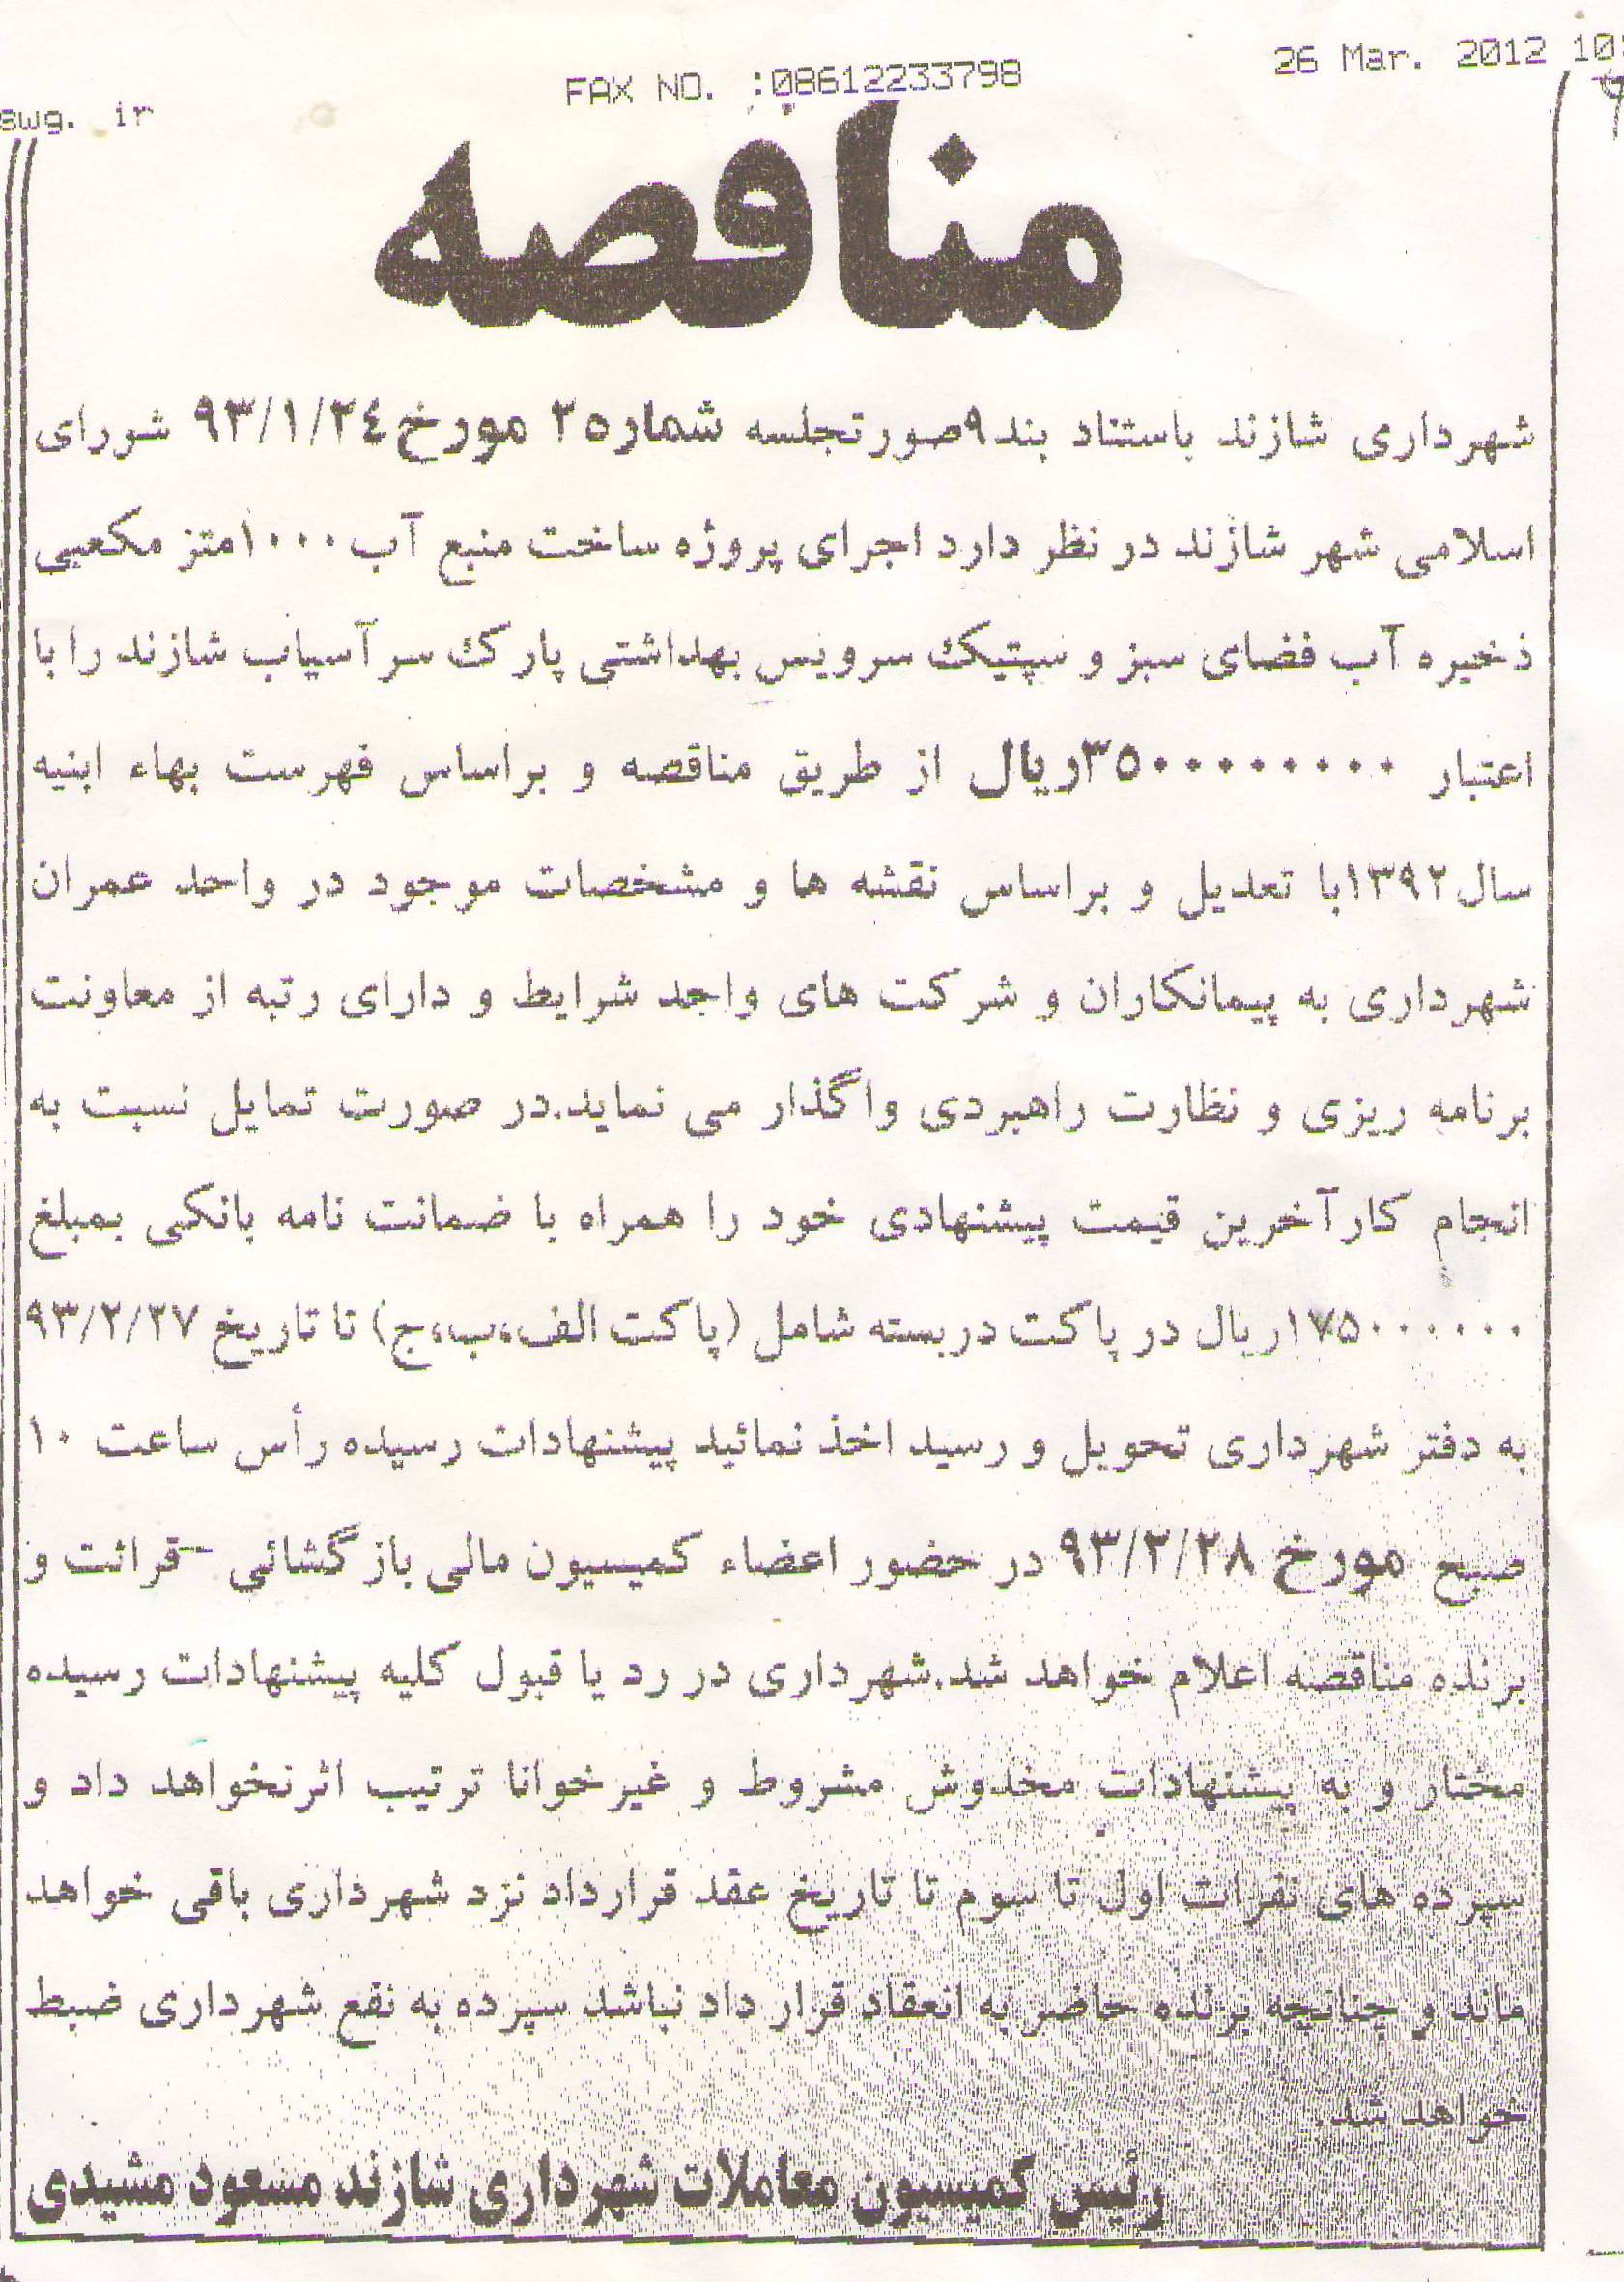 26 Mar. 2012 10:
FAX NO. :08612233798
swg. ir
مناقصه
شهرداری شازند باستناد بند۹صورتجلسه شمار۲۵ مورخ۹۳/۱/۲۴ شورای
اسلامی شهر شازند در نظر دارد اجرای پروژه ساخت منبع آب۱۰۰۰متز مکعبی
ذخیره آب فضای سبز و سپتیک سرویس بهداشتی پارک سرآسیاب شازند را با
اعتبار ۳۵۰۰۰۰۰۰۰۰ریال از طریق مناقصه و براساس فهرست بهاء ابنیه
سال۱۳۹۲با تعدیل و براساس نقشه ها و مشخصات موجود در واحد عمران
شهرداری به پیمانکاران و شرکت های واجد شرایط و دارای رتبه از معاونت
برنامه ریزی و نظارت راهبردی واگذار می نماید.در صورت تمایل نسبت به
انجام کارآخرین قیمت پیشنهادی خود را همراه با ضمانت نامه بانکی بمبلغ
۱۷۵۰۰۰۰۰۰ریال در پاکت دربسته شامل (پاکت الف،ب،ج) تا تاریخ ۹۳/۲/۲۷
به دفتر شهرداری تحویل و رسید اخذ نمائید پیشنهادات رسیده رأس ساعت ۱۰
صبح مورخ ۹۳/۲/۲۸ در حضور اعضاء کمیسیون مالی بازگشائی -قرائت و
برنده مناقصه اعلام خواهد شد.شهرداری در رد یا قبول کلیه پیشنهادات رسیده
مختار و به پیشنهادات مخدوش مشروط و غیرخوانا ترتیب اثرنخواهد داد و
سپرده های نفرات اول تا سوم تا تاریخ عقد قرارداد نزد شهرداری باقی خواهد
ماند و چنانچه برنده حاضر به انعقاد قرار داد نباشد سپرده به نفع شهرداری ضبط
خواهد شد.
رئیس کمیسیون معاملات شهرداری شازند مسعود مشیدی